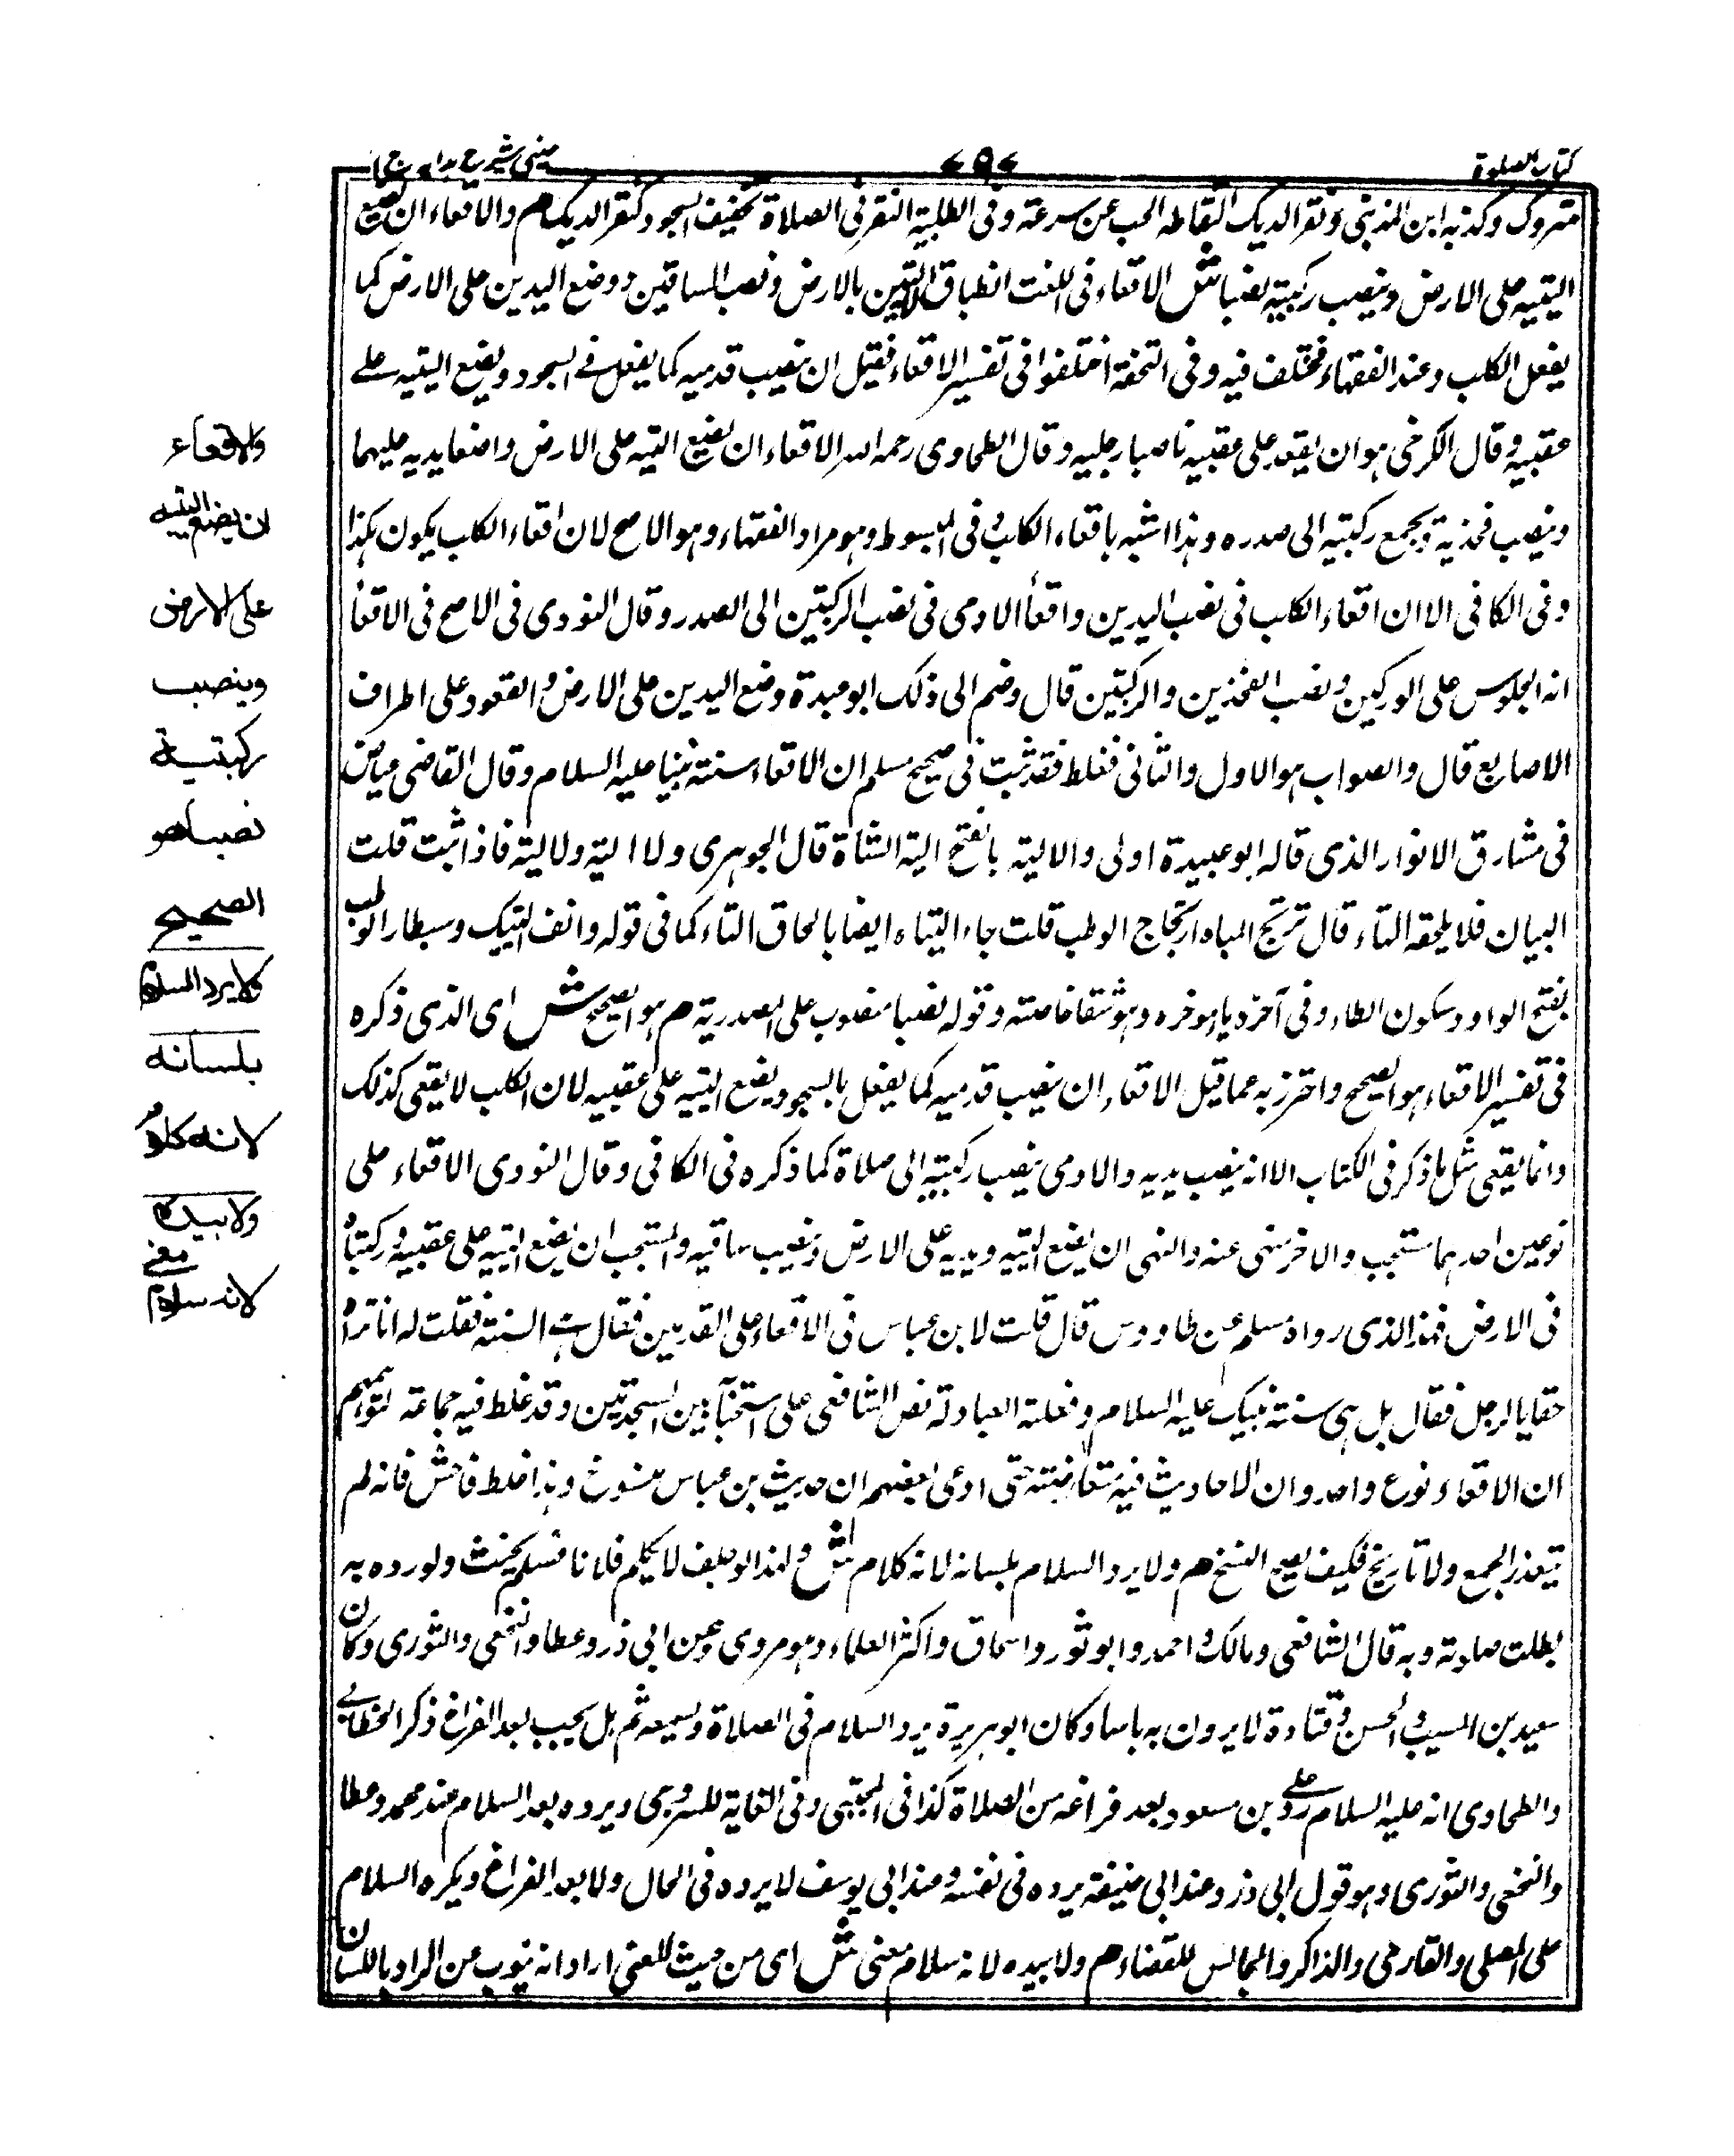 كتاب الصلوة
٧٩٧
عينى شرح هدايه ج ١
متروك وكذبه ابن المدينى ونقر الديك التقاطه الحب عن سرعته وفى الطلبة النقر فى الصلاة تخفيف السجود كنقر الديك هم والاقعاء ان يضع
اليتيه على الارض وينصب ركبتيه نصبا ش الاقعاء فى اللغت انطباق الاليتين بالارض ونصب الساقين ووضع اليدين على الارض كما
يفعل الكلب وعند الفقهاء مختلف فيه وفى التحفة اختلفوا فى تفسير الاقعاء فقيل ان ينصب قدميه كما يفعل فى السجود ويضع اليتيه على
عقبيه وقال الكرخى هو ان يقعد على عقبيه ناصبا رجليه وقال الطحاوى رحمه الله الاقعاء ان يضع اليتيه على الارض واضعا يديه عليهما
وينصب فخذيه ويجمع ركبتيه الى صدره وهذا اشبه باقعاء الكلب وفى المبسوط وهو مراد الفقهاء وهو الاصح لان اقعاء الكلب يكون هكذا
وفى الكافى الا ان اقعاء الكلب فى نصب اليدين واقعأ الادمى فى نصب الركبتين الى الصدر وقال النووى فى الاصح فى الاقعأ
انه الجلوس على الوركين ونصب الفخذين والركبتين قال وضم الى ذلك ابو عبيدة وضع اليدين على الارض والقعود على اطراف
الاصابع قال والصواب هو الاول والثانى فغلط فقد ثبت فى صحيح مسلم ان الاقعاء سنة نبينا عليه السلام وقال القاضى عياض
فى مشارق الانوار الذى قاله ابو عبيدة اولى والالية بالفتح الية الشاة قال الجوهرى ولا الية ولالية فاذا ثبت قلت
البيان فلا يلحقه التاء قال ترتج الياه ارتجاج الوطب قلت جاء اليتاء ايضا بالحاق التاء كما فى قوله وانف اليتيك وسبطار الوطب
بفتح الواو وسكون الطاء وفى آخره باء موخره وهو شقا خاصته وقوله نصبا منصوب على المصدرية هم هو الصحيح ش اى الذى ذكره
فى تفسير الاقعاء هو الصحيح واحترز به عما قيل الاقعاء ان ينصب قدميه كما يفعل بالسجود ويضع اليتيه على عقبيه لان الكلب لا يقعى كذلك
وانما يقعى مثل ما ذكر فى الكتاب الا انه ينصب يديه والادمى ينصب ركبتيه الى صلاة كما ذكره فى الكافى وقال النووى الاقعاء على
نوعين احدهما مستحب والاخر منهى عنه والنهى ان يضع اليتيه ويديه على الارض وينصب ساقيه والمستحب ان يضع اليتيه على عقبيه وركبتاه
فى الارض فهذا الذى رواه مسلم عن طاووس قال قلت لابن عباس فى الاقعاء على القدمين فقال هى السنة فقلت له انا نراه
جفا بالرجل فقال بل هى سنة نبيك عليه السلام وفعلته العبادلة نص الشافعى على استحبابه بين السجدتين وقد غلط فيه جماعة لتوهمهم
ان الاقعاء نوع واحد وان الاحاديث فيه متعارضة حتى ادعى بعضهم ان حديث بن عباس منسوخ وهذا غلط فاحش فانه لم
يتعذر الجمع ولا تاريخ فكيف يصح النسخ هم ولا يرد السلام بلسانه لانه كلام ش ولهذا لو حلف لا يكلم فلانا فسلم يحنث ولو رده به
بطلت صلوته وبه قال الشافعى ومالك واحمد وابو ثور واسحاق واكثر العلماء وهو مروى عن ابى ذر وعطا والنخعى والثورى وكان
سعيد بن المسيب والحسن وقتادة لا يرون به باسا وكان ابو هريرة يرد السلام فى الصلاة ويسمعه ثم هل يجيب بعد الفراغ ذكر الخطابى
والطحاوى انه عليه السلام رد على بن مسعود بعد فراغه من الصلاة كذا فى المجتبى وفى الغاية للسروجى ويرده بعد السلام عند محمد وعطا
والنخعى والثورى وهو قول ابى ذر وعند ابى حنيفة يرده فى نفسه وعند ابى يوسف لا يرده فى الحال ولا بعد الفراغ ويكره السلام
على المصلى والقارى والذاكر والجالس للقضاء هم ولا بيده لانه سلام معنى ش اى من حيث المعنى اراد انه ينوب عن الراد باللسان
والاقعاء
ان يضع اليتيه
على الارض
وينصب
ركبتيه
نصبا هو
الصحيح
ولا يرد السلام
بلسانه
لانه كلام
ولا بيده
لانه سلام معنى